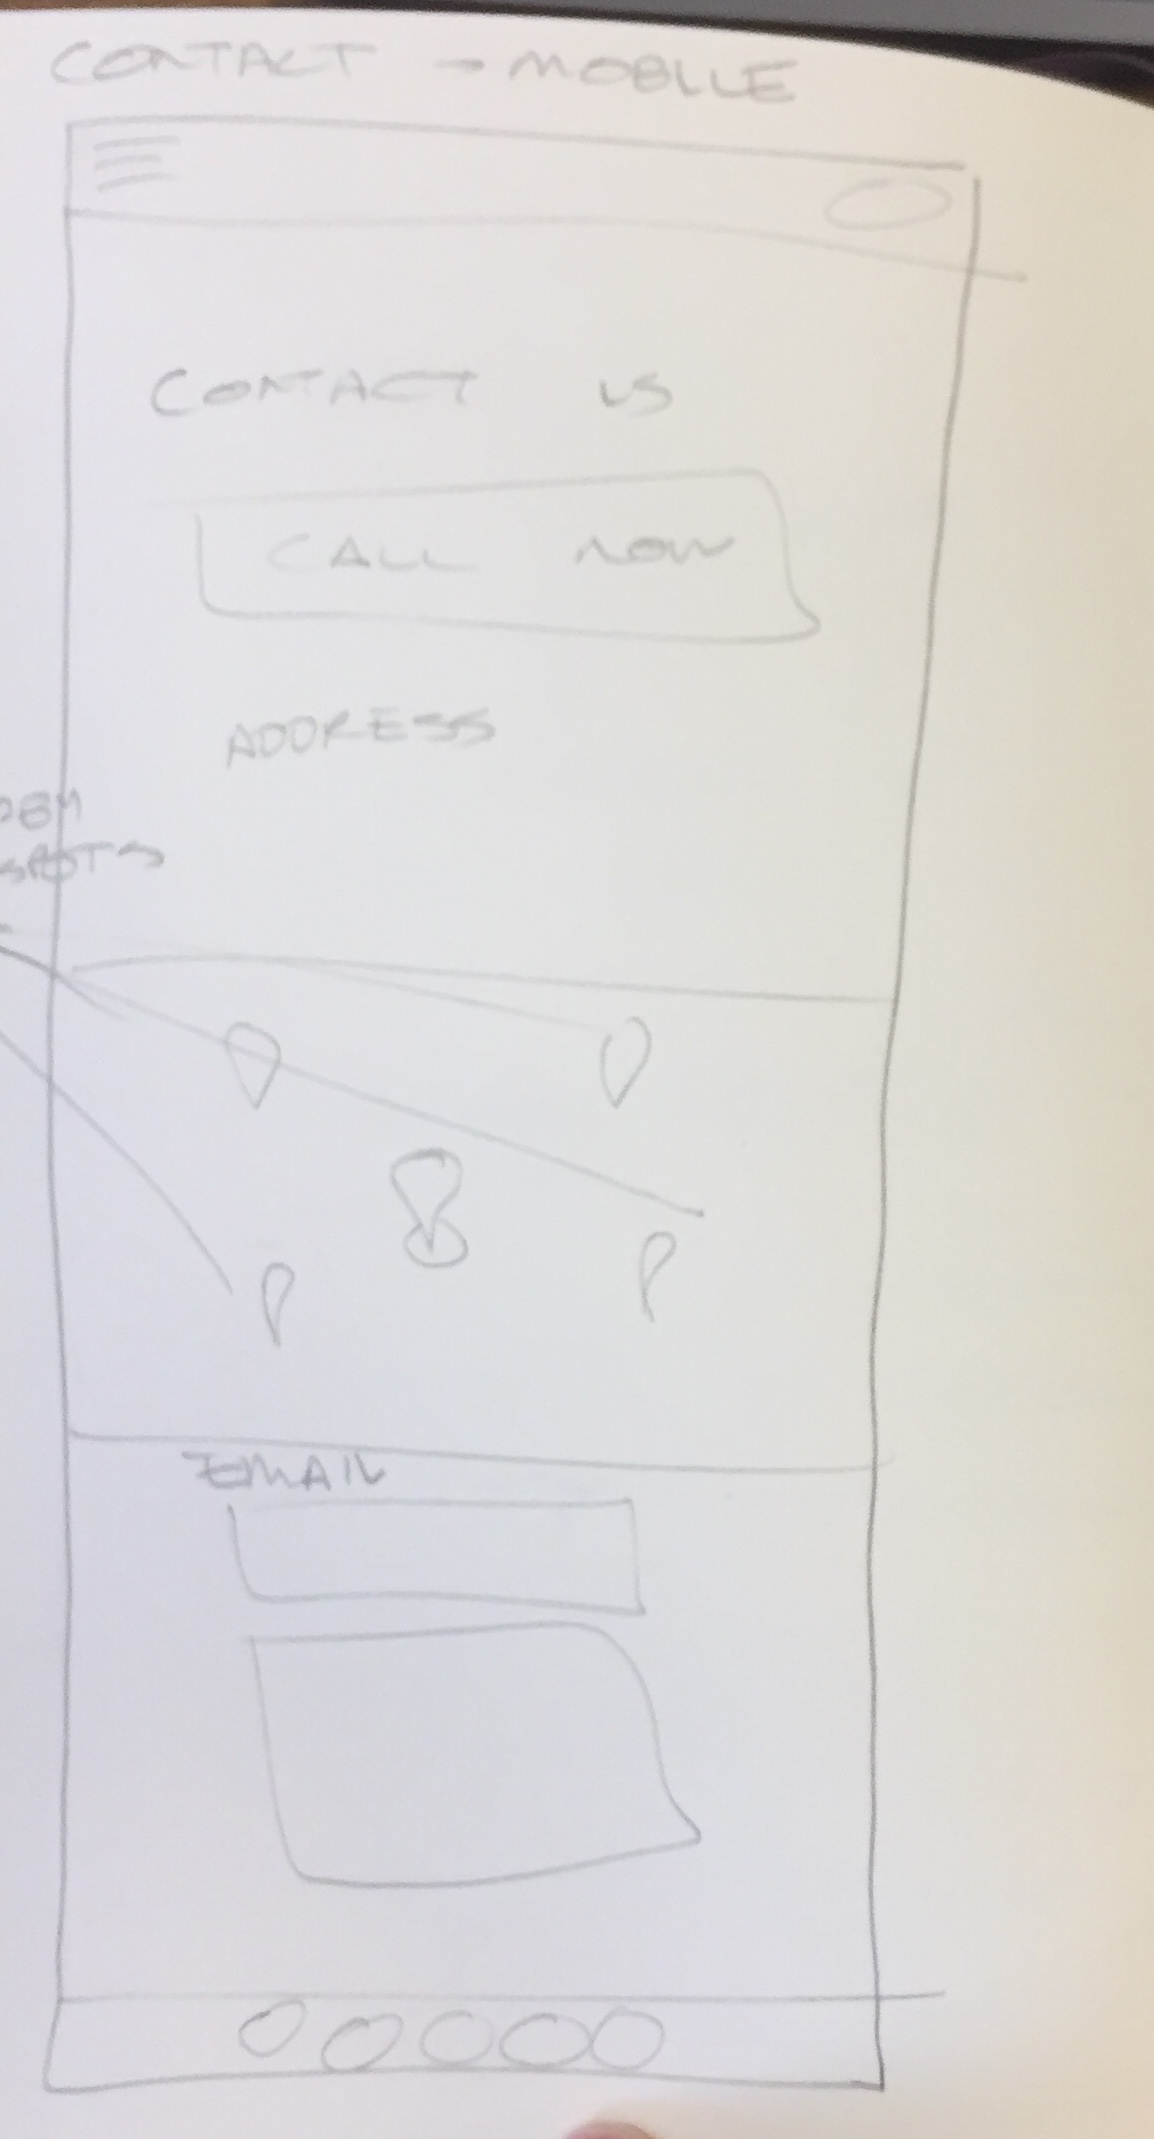 CONTACT - MOBILE
CONTACT US
CALL NOW
ADDRESS
SPOTS
EMAIL